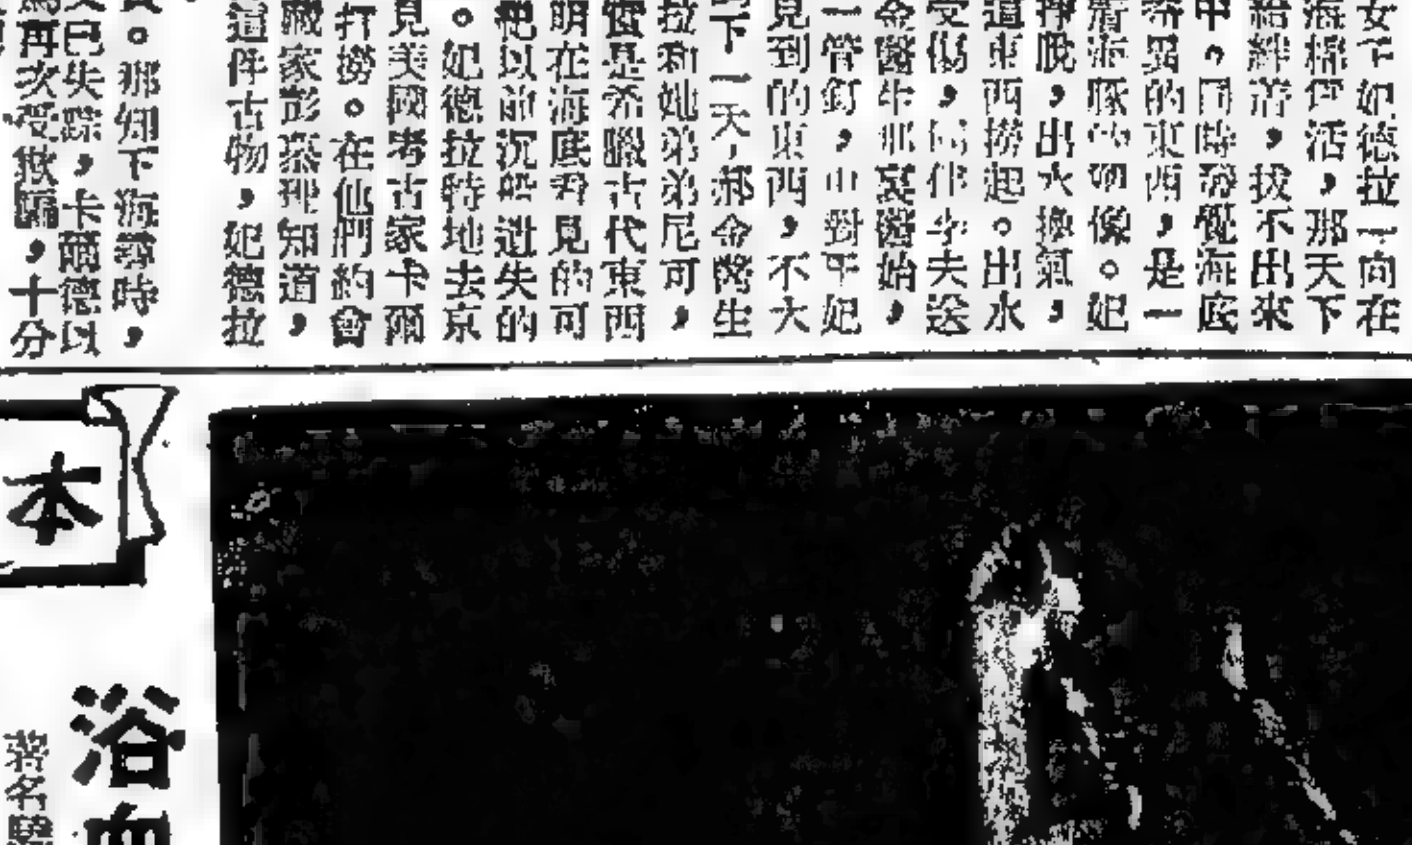 女下妃德拉一向在
海棉生活，那天下
給絆着，拔不出來
中。同時發覺海底
奇異的東西，是一
着海豚的塑像。妃
掙脫，出水換氣，
這東西撈起。出水
受傷，同伴李夫送
金醫生那裏醫治，
一管釘，
見到的東西，不大
下一天，郝金醫生
拉和她弟弟尼可，
實是希臘古代東西
明在海底看見的可
他以前沉船遺失的
。妃德拉特地去京
見美國考古家卡爾
打撈。在他們約會
藏家彭慕理知道，
這件古物，妃德拉
。那知下海尋時，
已失踪，卡爾德以
再次受欺騙，十分
本
浴血
著名